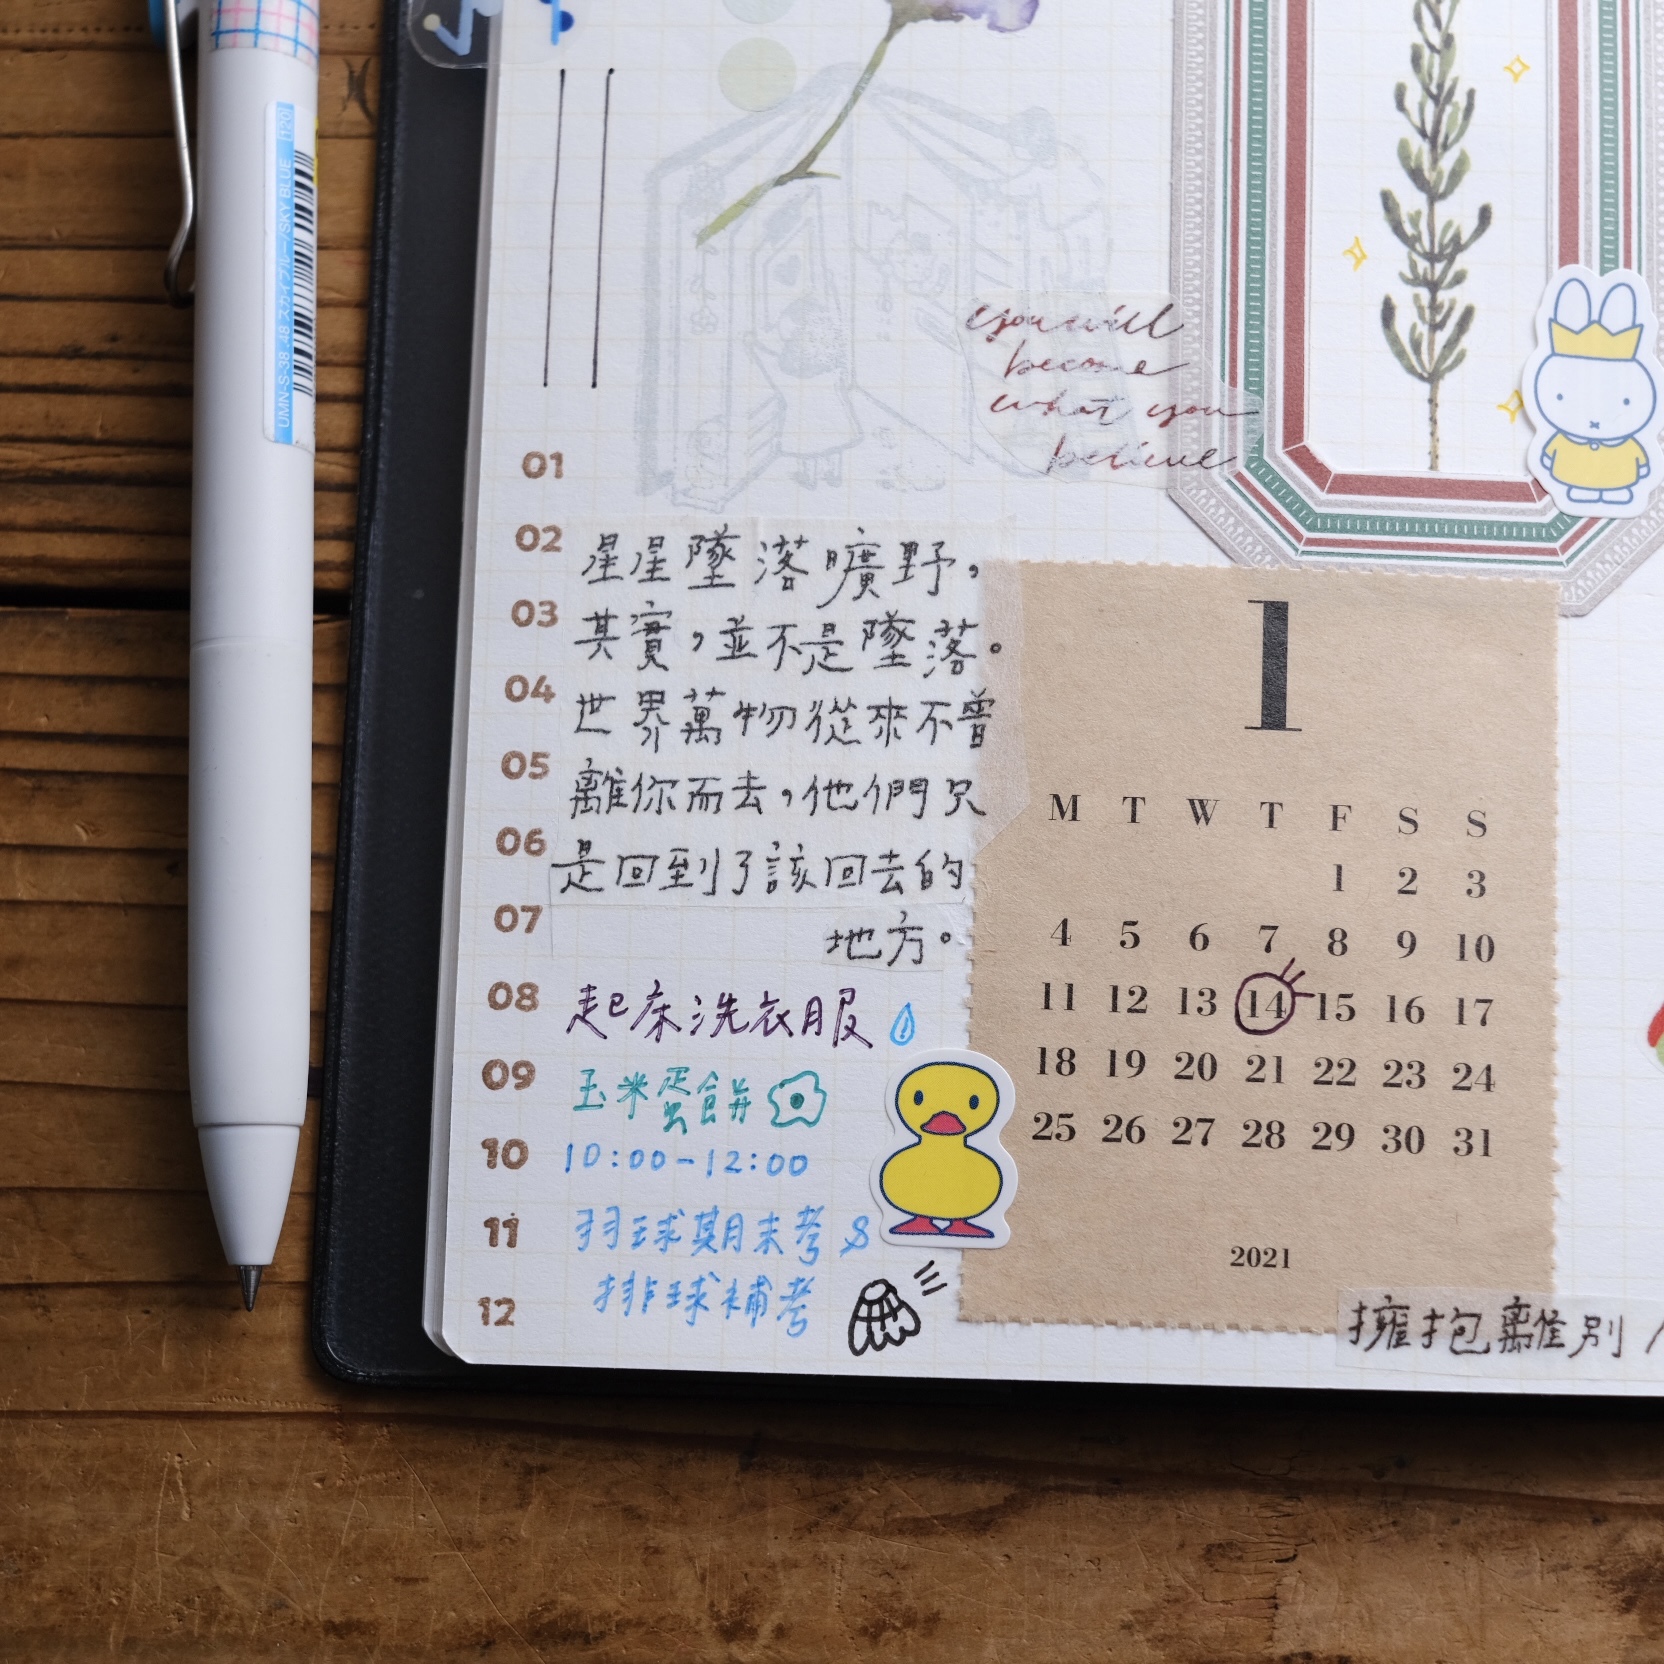 UMN-S-38 .48 スカイブルー/SKY BLUE [120]
you will
become
what you
believe
01
02
星星墜落曠野，
03
其實，並不是墜落。
04
世界萬物從來不曾
05
離你而去，他們只
06
是回到了該回去的
07
地方。
08
起床洗衣服
09
玉米蛋餅
10
10:00-12:00
11
羽球期末考
12
排球補考
1
M T W T F S S
1 2 3
4 5 6 7 8 9 10
11 12 13 14 15 16 17
18 19 20 21 22 23 24
25 26 27 28 29 30 31
2021
擁抱離別